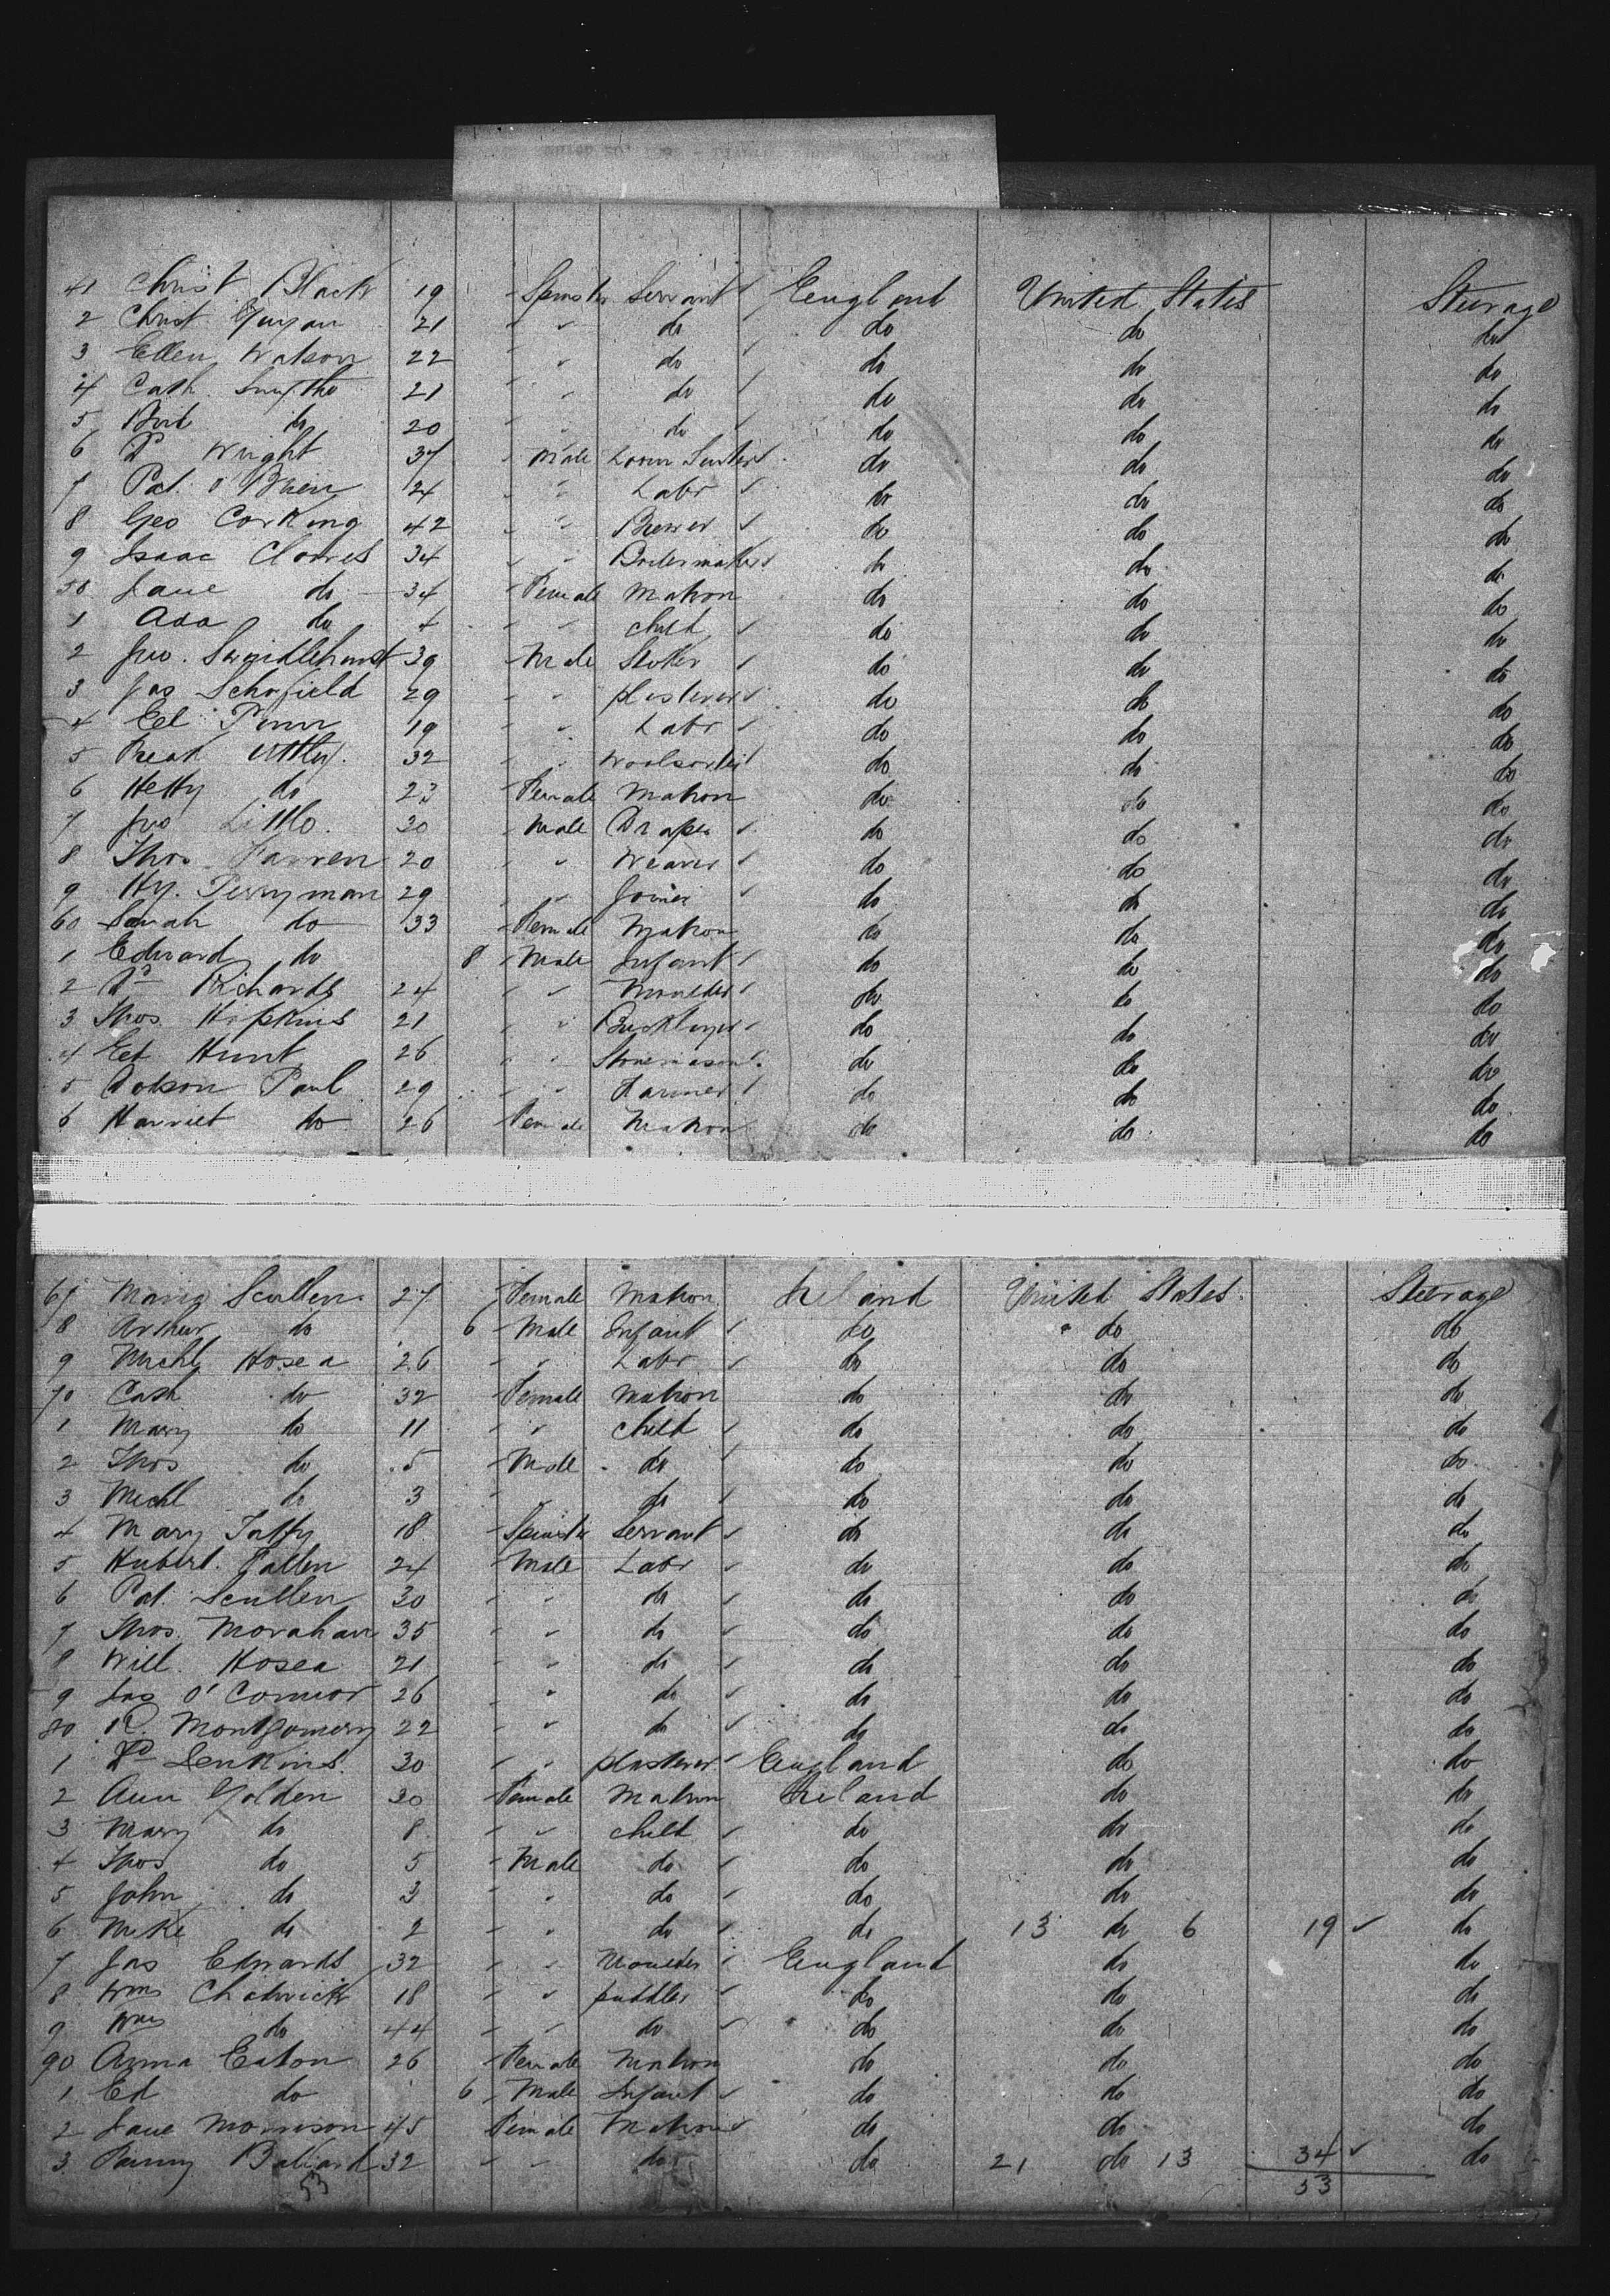 41 Christ Black 19 Spinster Servant England United States Steerage
2 Christ 21 " " do do do do
3 Ellen Watson 22 " do do do do
4 Cath. Smythe 21 " " do do do do
5 do 20 " " do do do do
6 Wright 37 Male Loom do do do
7 Pat. O'Brien 24 " " Labr do do do
8 Geo Corking 42 " " Brewer do do do
9 Isaac Clowes 34 " " Boilermaker do do do
50 Jane do 34 Female Matron do do do
1 Ada do 4 " " child do do do
2 Jno. Swindlehurst 39 Male Stoker do do do
3 Jas Schofield 29 " " plasterer do do do
4 Ed 19 " Labr do do do
5 Uttley. 32 " " Woolsorter do do do
6 Hetty do 23 Female Matron do do do
7 Jno Little. 30 Male Draper do do do
8 Thos Farren 20 " " Weaver do do do
9 Hy. Perryman 29 " " Joiner do do do
60 Sarah do 33 Female Matron do do do
1 Edward do 8 Male Infant do do do
2 Richards 24 " " Moulder do do do
3 Thos. Hopkins 21 " " Bricklayer do do do
4 Ed Hunt 26 " " Stonemason do do do
5 Dotson Paul 29 " " Farmer do do do
6 Harriet do 26 Female Matron do do do
67 Maria Scullen 27 Female Matron Ireland United States Steerage
8 Arthur do 6 Male Infant do do do
9 Michl Hosea 26 " " Labr do do do
70 Cath do 32 Female Matron do do do
1 Mary do 11 " " child do do do
2 Thos do 5 Male do do do do
3 Michl do 3 " do do do do
4 Mary Taffy 18 Spinster Servant do do do
5 Hubert Patten 24 Male Labr do do do
6 Pat. Scullen 30 " " do do do do
7 Thos. Morahan 35 " " do do do do
8 Will. Hosea 21 " " do do do do
9 Jas O'Connor 26 " do do do do
80 R. Montgomery 22 " " do do do do
1 Jenkins. 30 " " plasterer England do do
2 Ann Golden 30 Female Matron Ireland do do
3 Mary do 8 " " child do do do
4 Thos do 5 Male do do do do
5 John do 3 " " do do do do
6 Mike do 2 " " do do 13 do 6 19 ✓ do
7 Jas Edwards 32 " " Moulder England do do
8 Wm Chadwick 18 " " puddler do do do
9 Wm do 44 " " do do do do
90 Anna Eaton 26 Female Matron do do do
1 Ed do 6 Male Infant do do do
2 Jane Morrison 45 Female Matron do do do
3 Fanny Ballard 32 " " do do 21 do 13 34 ✓ do
53 53